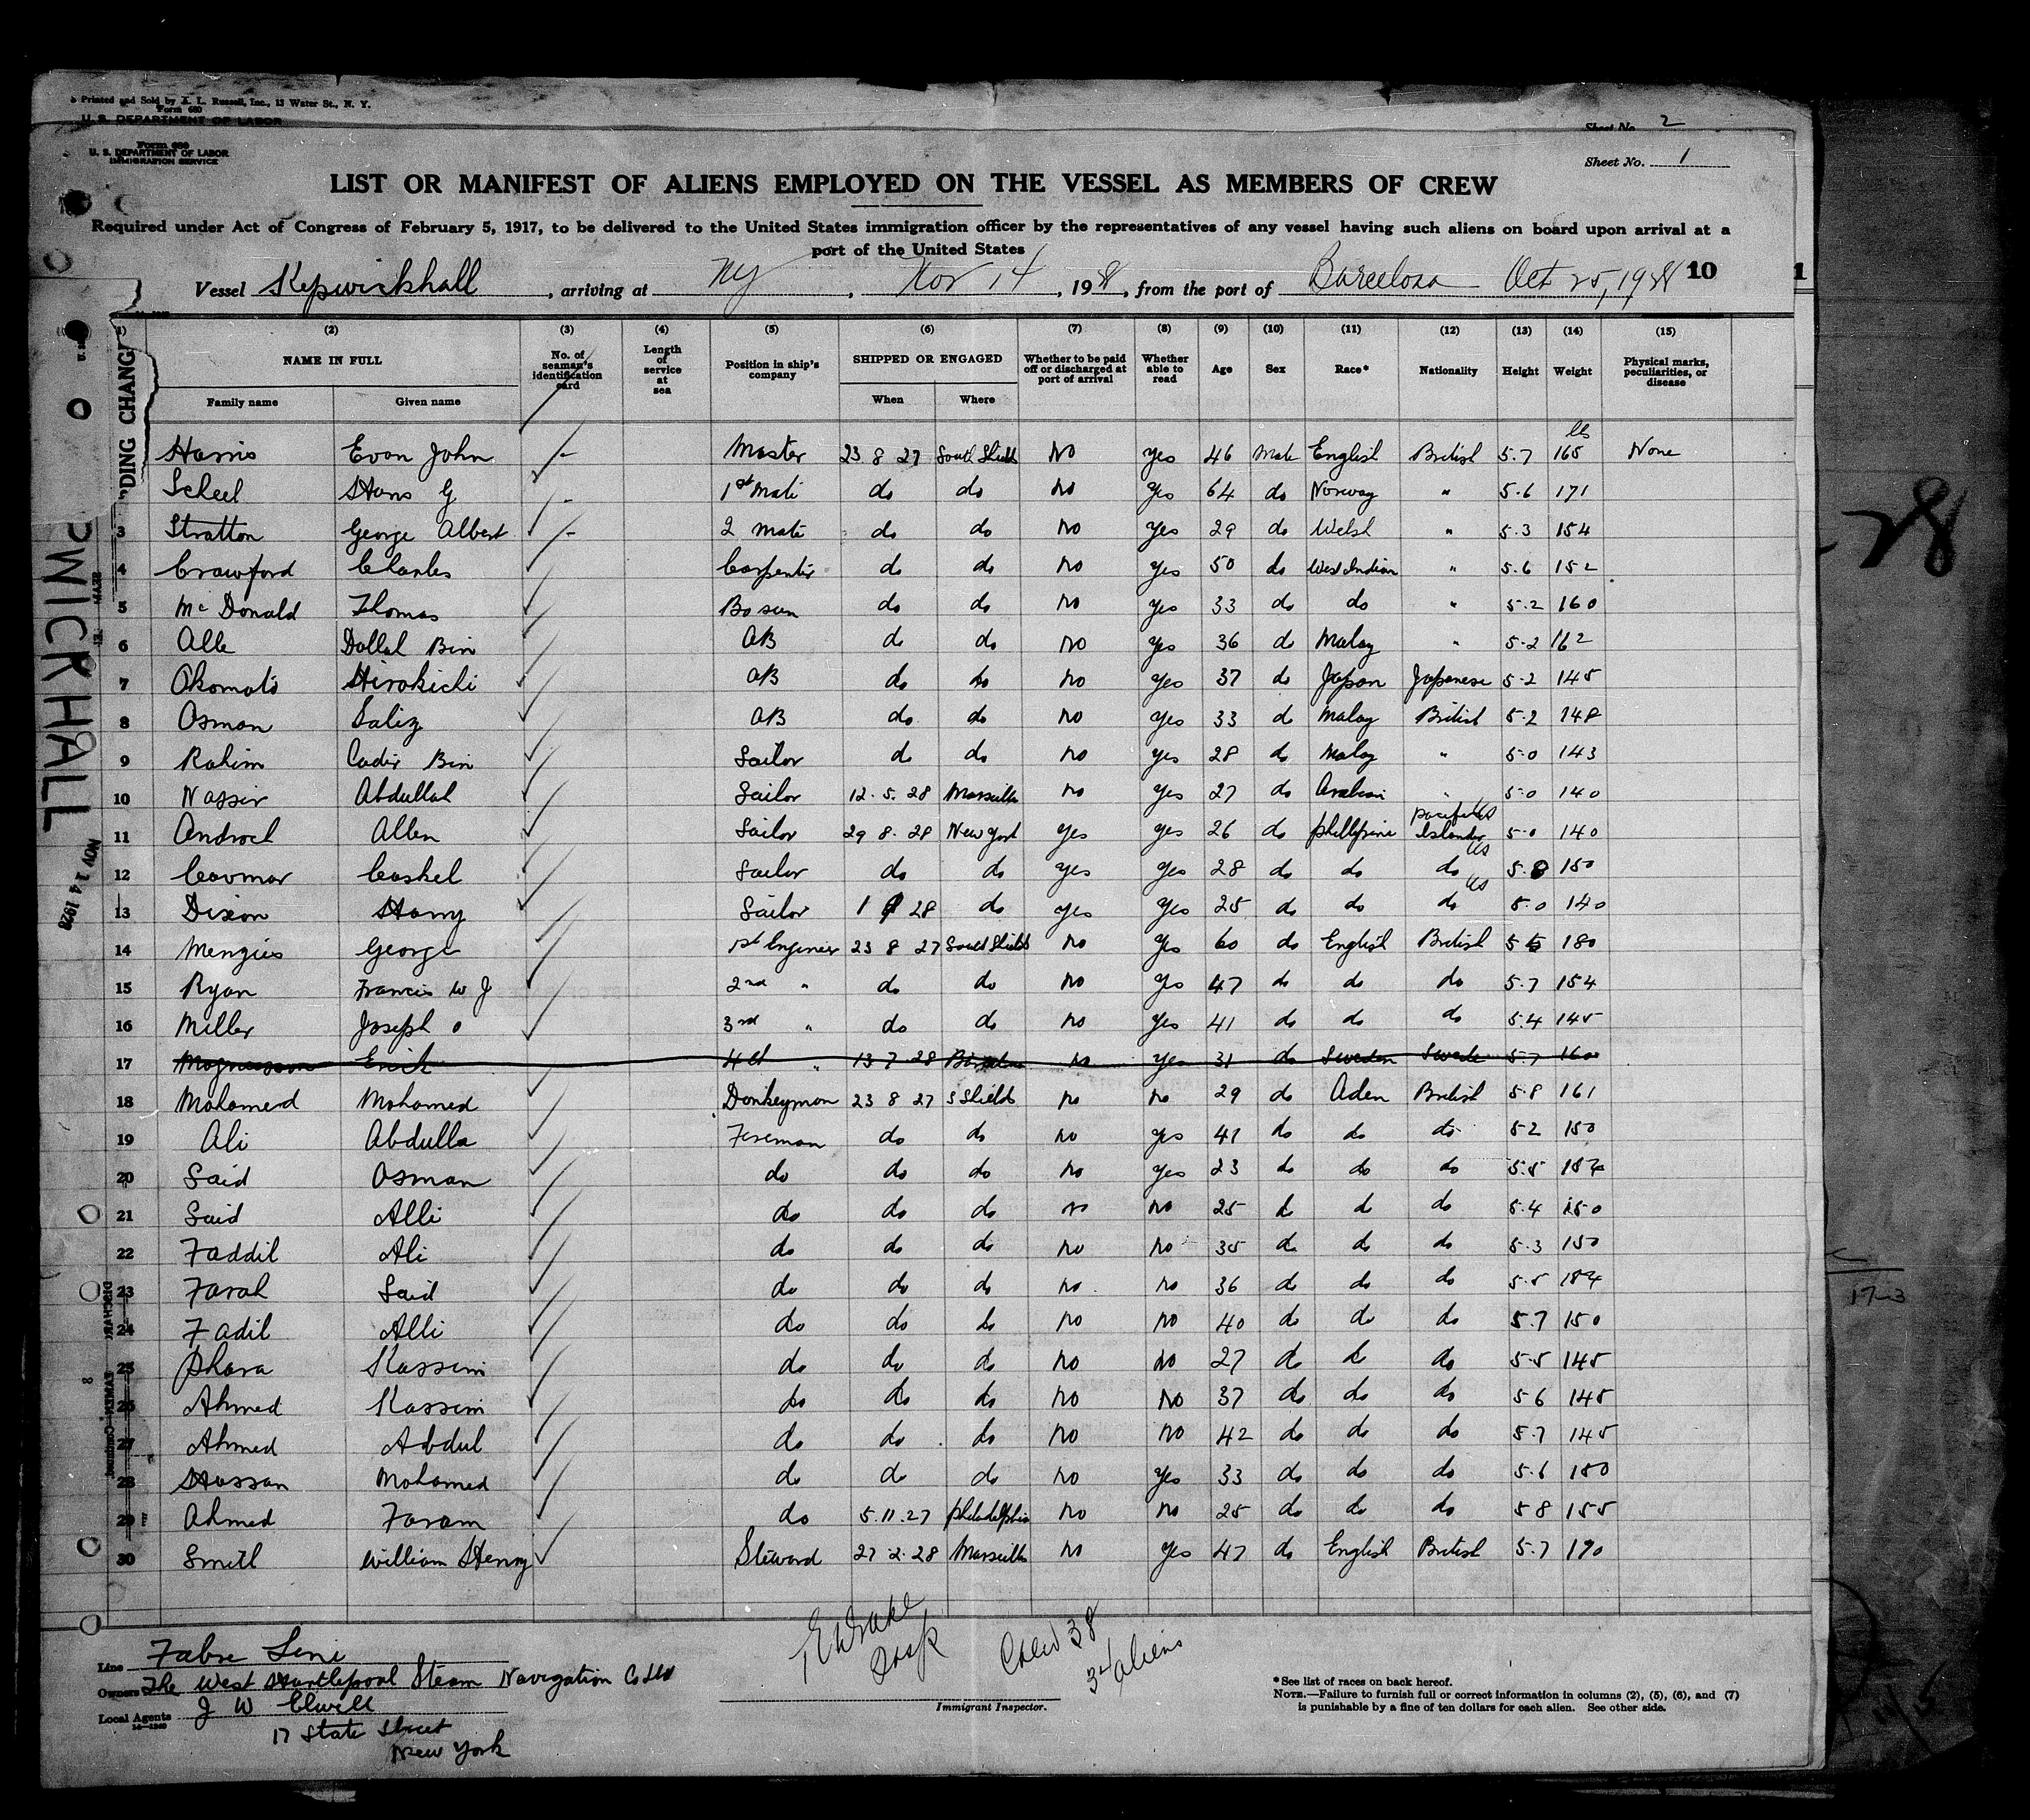 Printed and Sold by A. L. Russell, Inc., 13 Water St., N. Y.
Form 680
U. S. DEPARTMENT OF LABOR
Sheet No. 2
Form 680
U. S. DEPARTMENT OF LABOR
IMMIGRATION SERVICE
Sheet No. 1
LIST OR MANIFEST OF ALIENS EMPLOYED ON THE VESSEL AS MEMBERS OF CREW
Required under Act of Congress of February 5, 1917, to be delivered to the United States immigration officer by the representatives of any vessel having such aliens on board upon arrival at a
port of the United States
Vessel Kepwickhall, arriving at NY, Nov 14, 1928, from the port of Barcelona Oct 25, 1928 10 1
(1) (2) (3) (4) (5) (6) (7) (8) (9) (10) (11) (12) (13) (14) (15)
NAME IN FULL No. of seaman's identification card Length of service at sea Position in ship's company SHIPPED OR ENGAGED Whether to be paid off or discharged at port of arrival Whether able to read Age Sex Race* Nationality Height Weight Physical marks, peculiarities, or disease
Family name Given name When Where
Harris Evan John - Master 23 8 27 South Shields No Yes 46 Male English British 5.7 165 lbs None
Scheel Hans G - 1st Mate do do No Yes 64 do Norway " 5.6 171
3 Stratton George Albert - 2 Mate do do No Yes 29 do Welsh " 5.3 154
4 Crawford Charles Carpenter do do No Yes 50 do West Indian " 5.6 152
5 McDonald Thomas Bosun do do No Yes 33 do do " 5.2 160
6 Alle Dollah Bin AB do do No Yes 36 do Malay " 5.2 162
7 Okomato Hirokichi AB do do No Yes 37 do Japan Japanese 5.2 145
8 Osman Saliz AB do do No Yes 33 do Malay British 5.2 148
9 Rahim Cadir Bin Sailor do do No Yes 28 do Malay " 5.0 143
10 Nassir Abdullah Sailor 12.5.28 Marseilles No Yes 27 do Arabian " 5.0 140
11 Androel Allen Sailor 29 8.28 New York Yes Yes 26 do Phillipine Pacific Islander US 5.0 140
12 Covmar Caskel Sailor do do Yes Yes 28 do do do US 5.8 150
13 Dixon Harry Sailor 1 9 28 do Yes Yes 25 do do do US 5.0 140
14 Menzies George 1st Engineer 23 8 27 South Shields No Yes 60 do English British 5 5 180
15 Ryan Francis W J 2nd " do do No Yes 47 do do do 5.7 154
16 Miller Joseph O 3rd " do do No Yes 41 do do do 5.4 145
17 Magnusson Erick 4th " 13 7.28 No Yes 31 do Sweden Swede 5.7 160
18 Mohamed Mohamed Donkeyman 23 8 27 S Shields No No 29 do Aden British 5.8 161
19 Ali Abdulla Fireman do do No Yes 41 do do do 5 2 150
20 Said Osman do do do No Yes 23 do do do 5.5
21 Said Alli do do do No No 25 do do do 5.4 150
22 Faddil Ali do do do No No 35 do do do 5.3 150
23 Farah Said do do do No No 36 do do do 5.5 154
24 Fadil Alli do do do No No 40 do do do 5.7 150
25 Phara Kassim do do do No No 27 do do do 5.5 145
26 Ahmed Kassim do do do No No 37 do do do 5 6 145
27 Ahmed Abdul do do do No No 42 do do do 5.7 145
28 Hassan Mohamed do do do No Yes 33 do do do 5.6 150
29 Ahmed Faram do 5.11.27 Philadelphia No No 25 do do do 5 8 155
30 Smith William Henry Steward 27.2.28 Marseilles No Yes 47 do English British 5.7 170
PWICKHALL
NOV 14 1928
28
17-3
Line Fabre Line
Owners The West Hartlepool Steam Navigation Co Ltd
Local Agents J W Elwell
17 State Street
New York
Crew 38
34 aliens
Immigrant Inspector.
*See list of races on back hereof.
NOTE.—Failure to furnish full or correct information in columns (2), (5), (6), and (7)
is punishable by a fine of ten dollars for each alien. See other side.